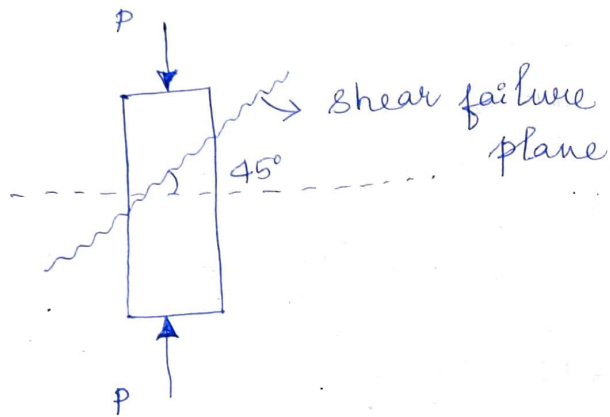 P
shear failure
plane
45°
P